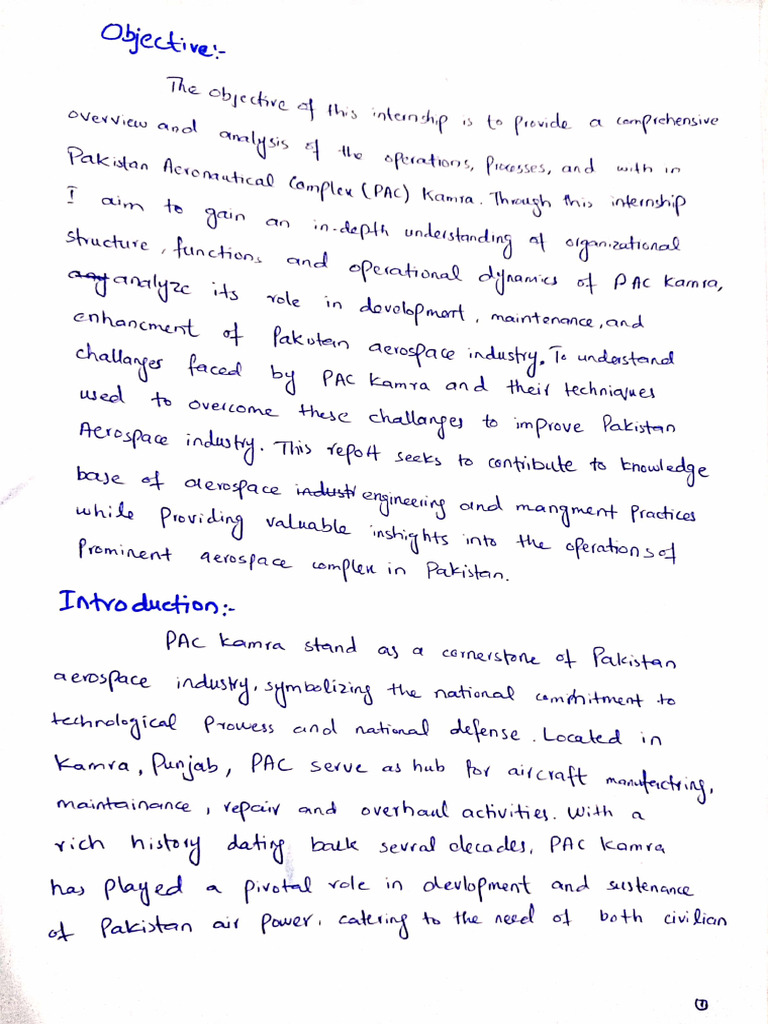 Objective:-
The objective of this internship is to provide a comprehensive
overview and analysis of the operations, processes, and with in
Pakistan Aeronautical Complex (PAC) Kamra. Through this internship
I aim to gain an in-depth understanding of organizational
structure, functions and operational dynamics of PAC Kamra,
analyze its role in development, maintenance, and
enhancment of Pakistan aerospace industry. To understand
challanges faced by PAC Kamra and their techniques
used to overcome these challanges to improve Pakistan
Aerospace industry. This report seeks to contribute to knowledge
base of aerospace industr engineering and mangment practices
while providing valuable inshights into the operations of
prominent aerospace complex in Pakistan.
Introduction:-
PAC Kamra stand as a cornerstone of Pakistan
aerospace industry, symbolizing the national commitment to
technological prowess and national defense. Located in
Kamra, Punjab, PAC serve as hub for aircraft manufactring,
maintainance, repair and overhaul activities. With a
rich history dating back sevral decades, PAC Kamra
has played a pivotal role in devlopment and sustenance
of Pakistan air power, catering to the need of both civilian
1